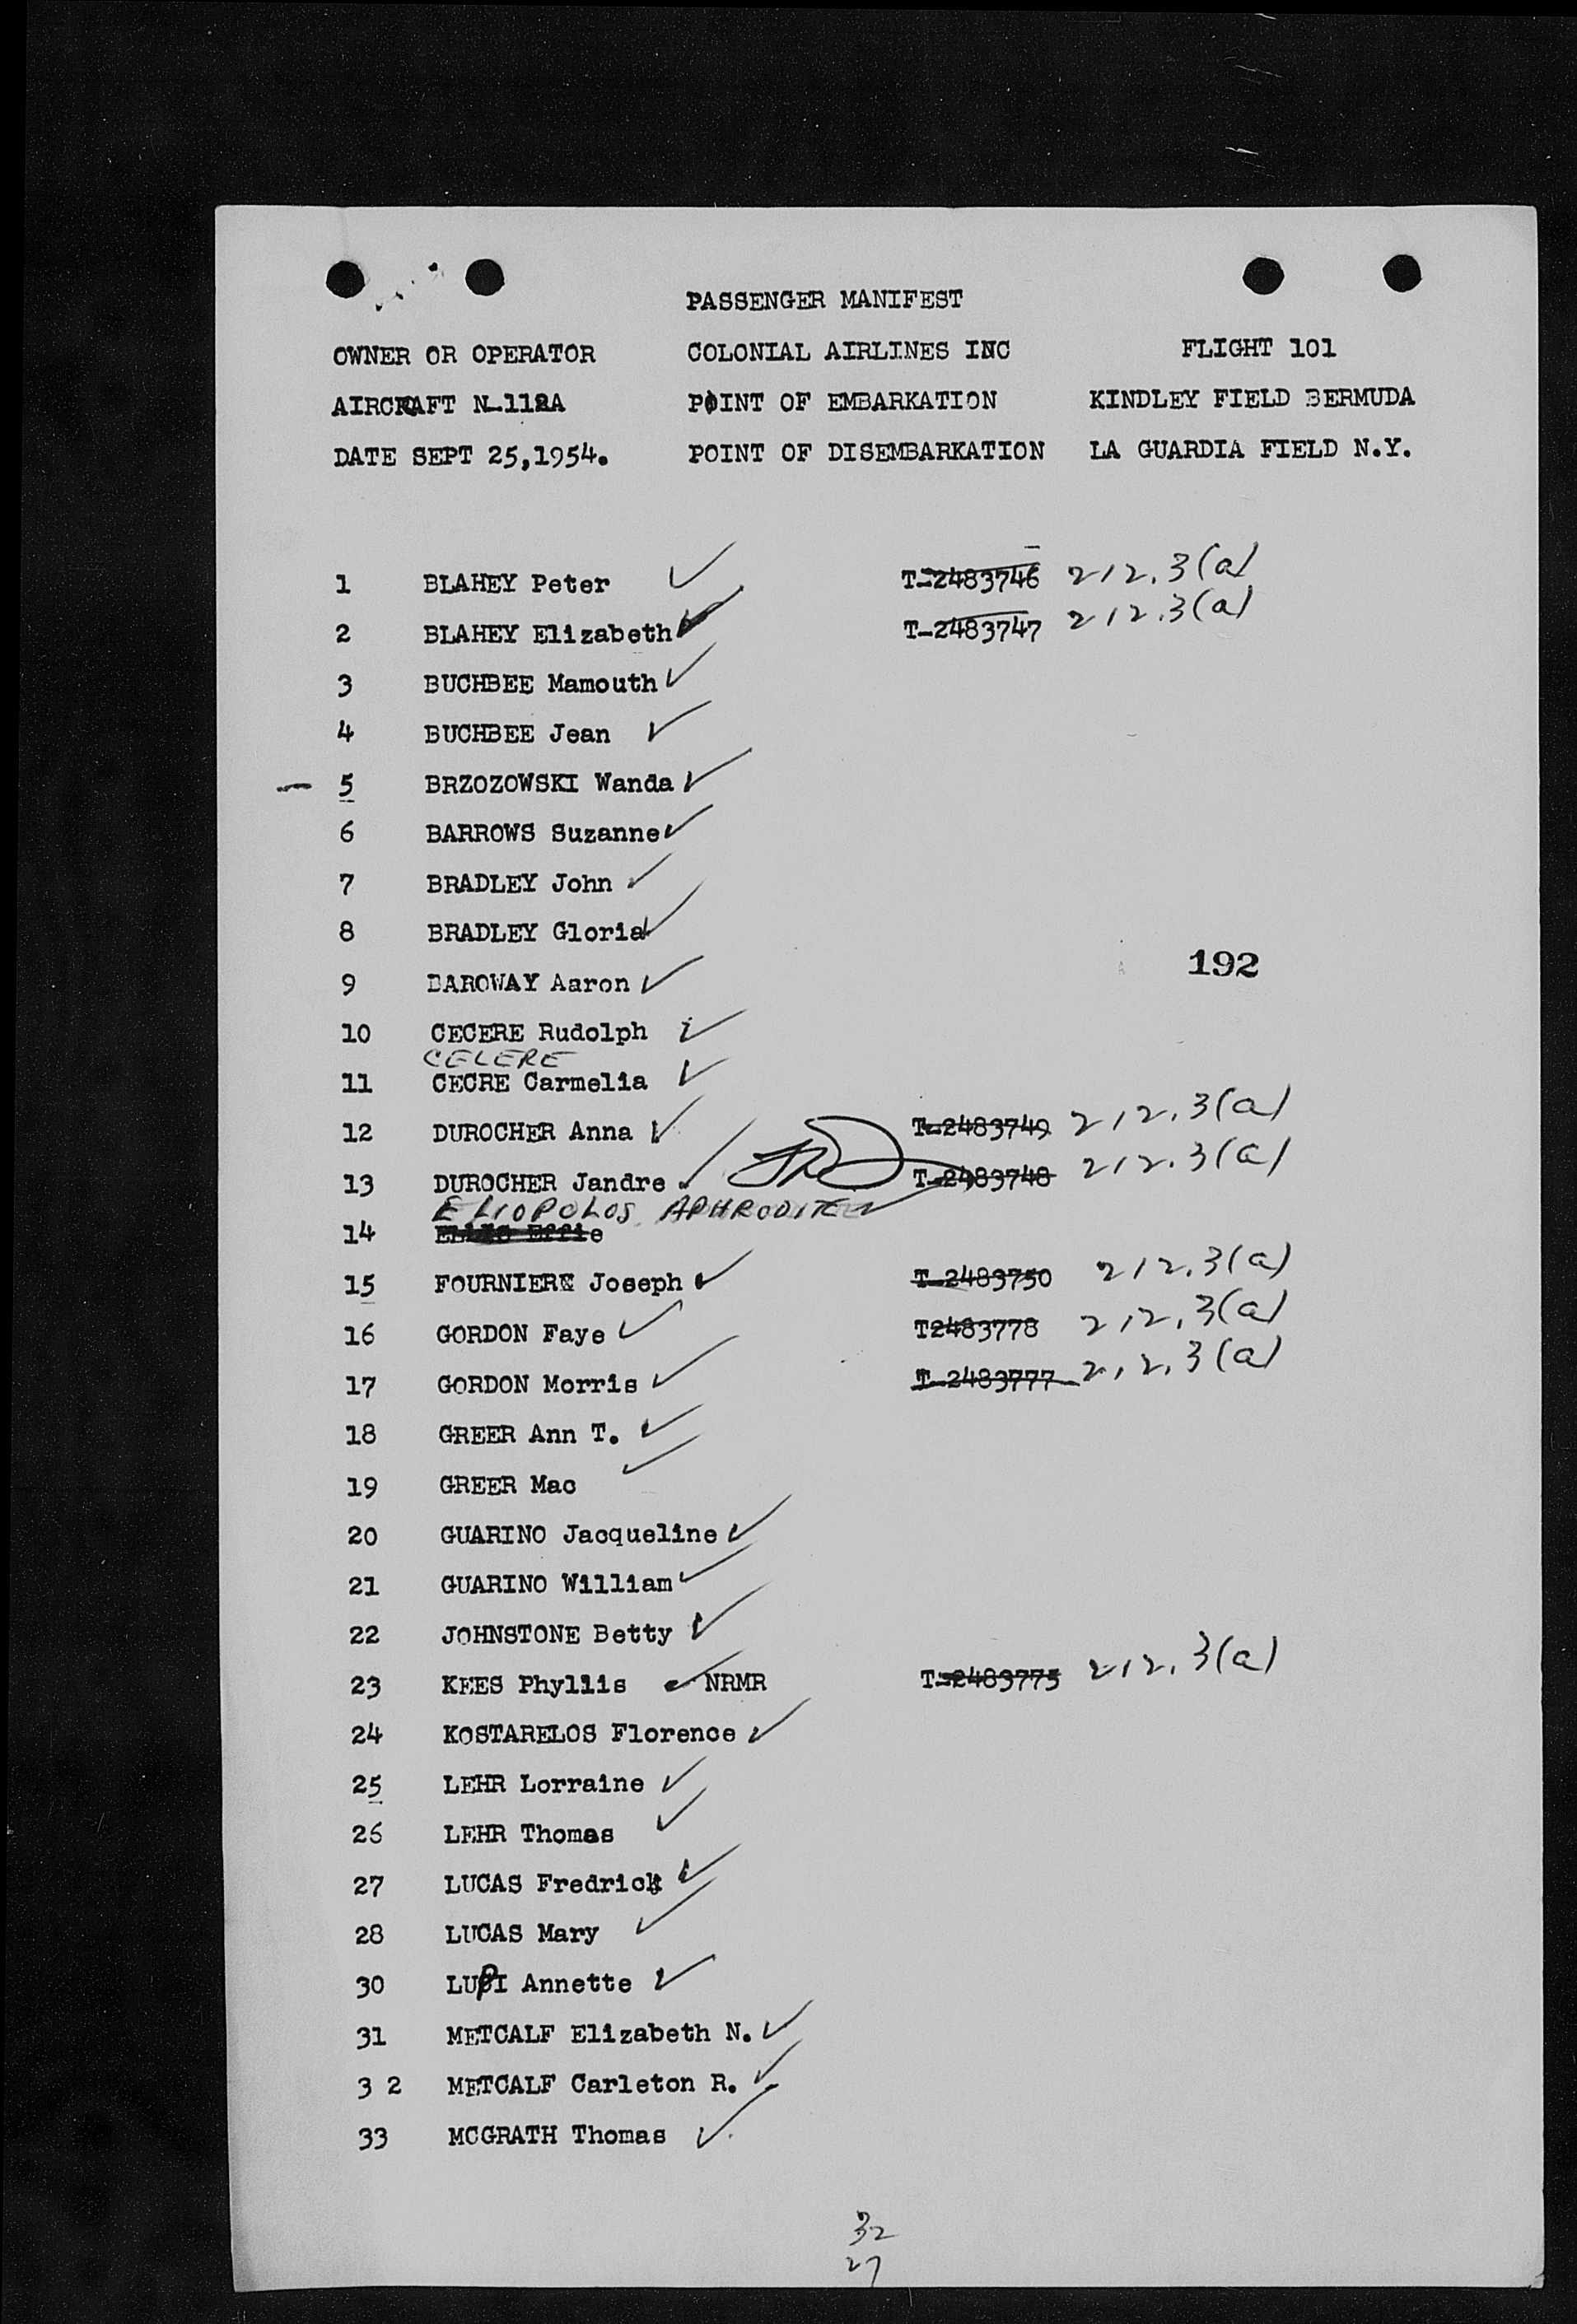 PASSENGER MANIFEST
OWNER OR OPERATOR COLONIAL AIRLINES INC FLIGHT 101
AIRCRAFT N-112A POINT OF EMBARKATION KINDLEY FIELD BERMUDA
DATE SEPT 25,1954. POINT OF DISEMBARKATION LA GUARDIA FIELD N.Y.
1 BLAHEY Peter T-2483746 212.3(a)
2 BLAHEY Elizabeth T-2483747 212.3(a)
3 BUCHBEE Mamouth
4 BUCHBEE Jean
5 BRZOZOWSKI Wanda
6 BARROWS Suzanne
7 BRADLEY John
8 BRADLEY Gloria
192
9 DAROWAY Aaron
10 CECERE Rudolph
CELERE
11 CECRE Carmelia
12 DUROCHER Anna T-2483749 212.3(a)
13 DUROCHER Jandre T-2483748 212.3(a)
ELIOPOLOS APHRODITE
14 Effie
15 FOURNIER Joseph T-2483750 212.3(a)
16 GORDON Faye T2483778 212.3(a)
17 GORDON Morris T-2483777 212.3(a)
18 GREER Ann T.
19 GREER Mac
20 GUARINO Jacqueline
21 GUARINO William
22 JOHNSTONE Betty
23 KEES Phyllis NRMR T-2483775 212.3(a)
24 KOSTARELOS Florence
25 LEHR Lorraine
26 LEHR Thomas
27 LUCAS Fredrick
28 LUCAS Mary
30 LUPI Annette
31 METCALF Elizabeth N.
3 2 METCALF Carleton R.
33 MCGRATH Thomas
32
27